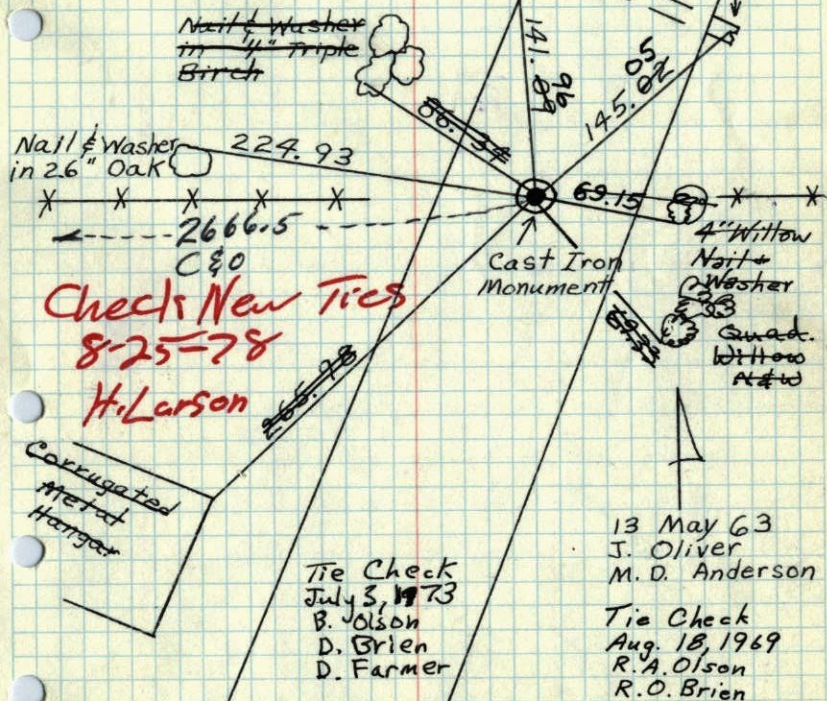 Nail & Washer
in "4" Triple
Birch
141.89
96
05
145.02
86.34
Nail & Washer
in 26" Oak
224.93
69.15
2666.5
C&O
Cast Iron
Monument
4" Willow
Nail &
Washer
Quad.
Willow
N&W
Check New Ties
8-25-78
H. Larson
265.98
Corrugated
Metal
Hangar
13 May 63
J. Oliver
M. D. Anderson
Tie Check
July 3, 1973
B. Olson
D. Brien
D. Farmer
Tie Check
Aug. 18, 1969
R. A. Olson
R. O. Brien